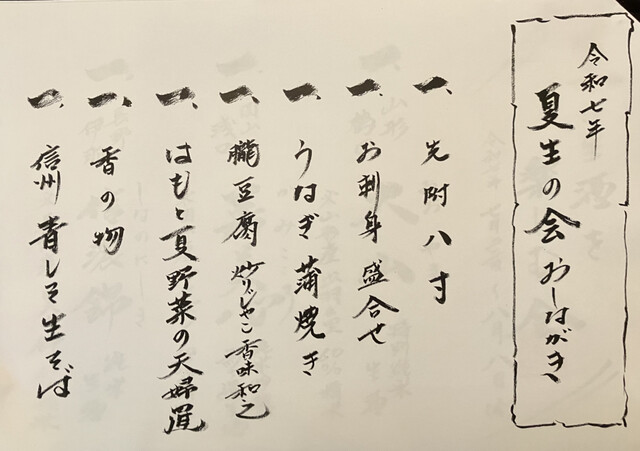 令和七年
夏生の会 おしながき
一、先附八寸
一、お刺身盛合せ
一、うなぎ蒲焼き
一、朧豆腐 炒りじゃこ香味和え
一、はもと夏野菜の天婦羅
一、香の物
一、信州青しそ生そば